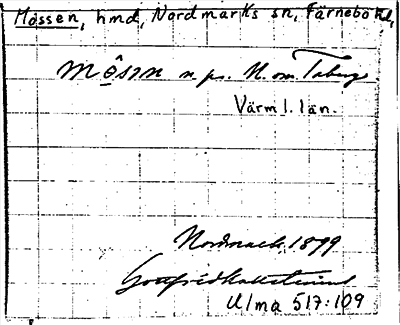 Mossen, hmd, Nordmarks sn, Färnebo hd,
môsɜn n. pr. N. om Taberg
Värml. län.
Nordmark 1899
Gottfrid Kallstenius
Ulma 517:109